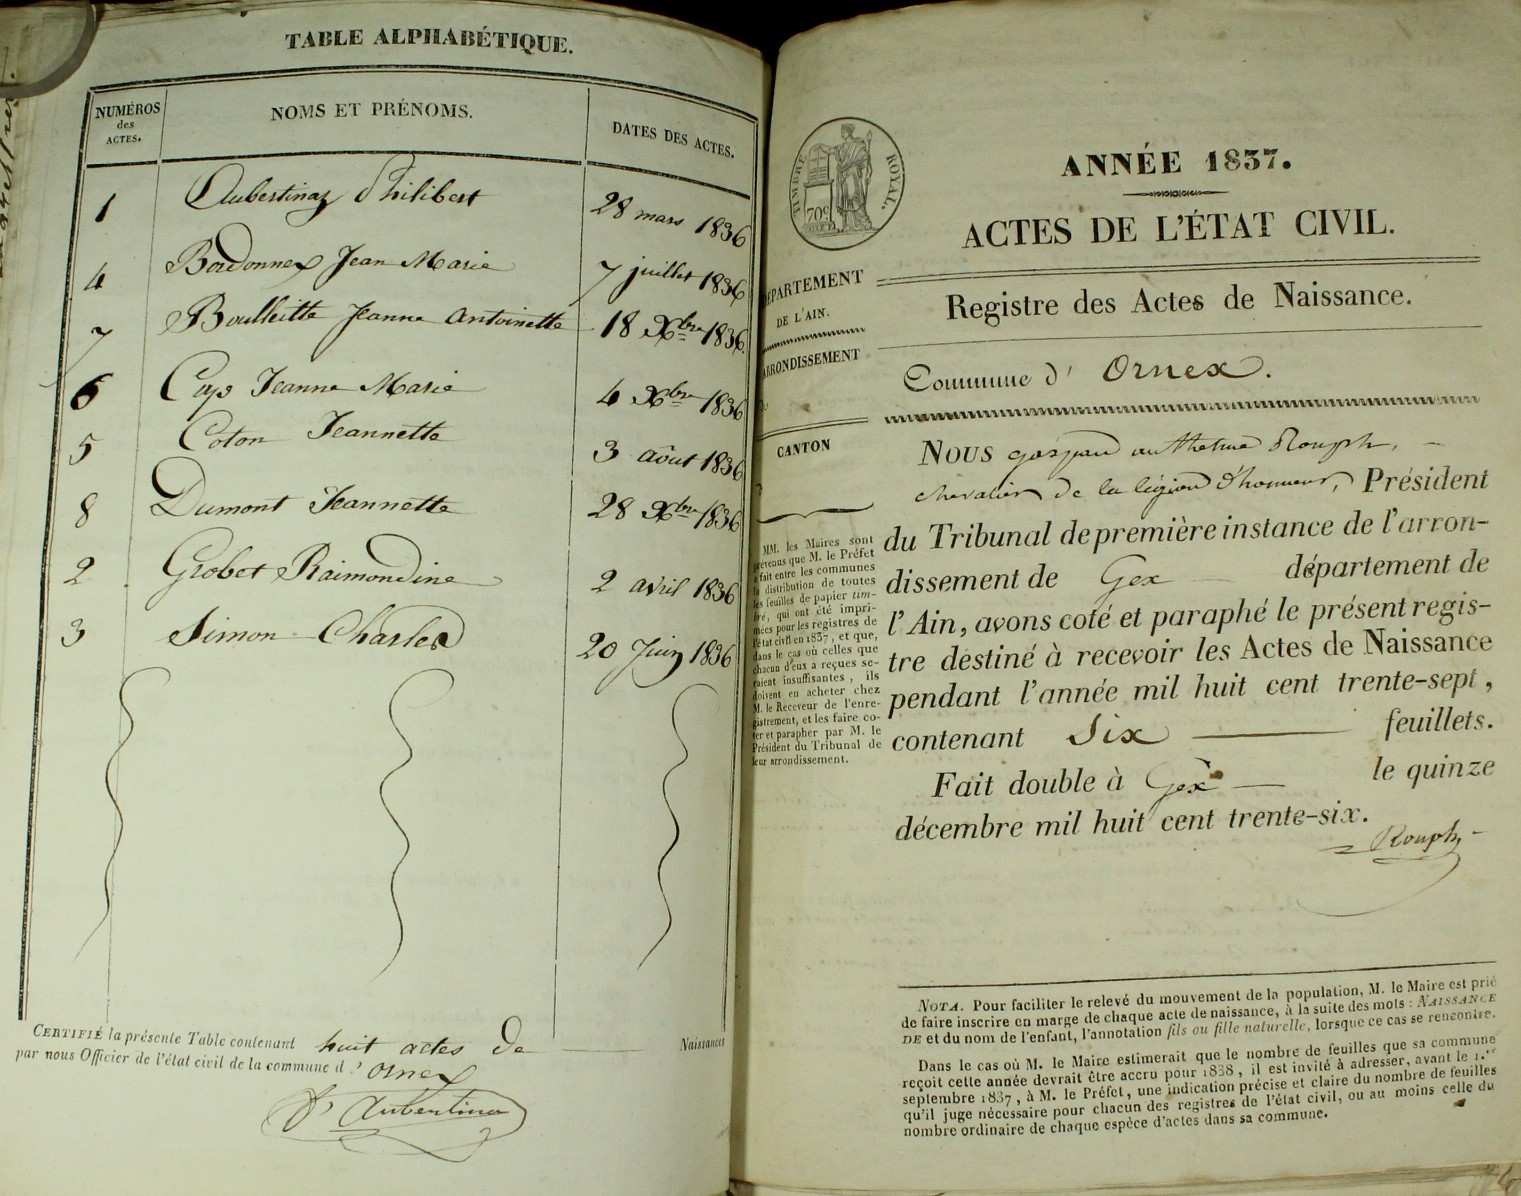 TABLE ALPHABÉTIQUE.
NUMÉROS des ACTES. NOMS ET PRÉNOMS. DATES DES ACTES.
1 Aubertinaz Philibert 28 mars 1836
4 Bordonnex Jean Marie 7 juillet 1836
7 Boulleitte Jeanne Antoinette 18 Xbre 1836.
6 Jeanne Marie 4 Xbre 1836
5 Coton Jeannette 3 aôut 1836
8 Dumont Jeannette 28 Xbre 1836
2 Grobet Raimondine 2 avril 1836
3 Simon Charles 20 Juin 1836
CERTIFIÉ la présente Table contenant huit actes de Naissances
par nous Officier de l'état civil de la commune d' Ornex
TIMBRE ROYAL.
70c
ANNÉE 1837.
ACTES DE L'ÉTAT CIVIL.
DÉPARTEMENT
DE L'AIN.
ARRONDISSEMENT
CANTON
MM. les Maires sont
prévenus que M. le Préfet
a fait entre les communes
la distribution de toutes
les feuilles de papier tim-
bré, qui ont été impri-
mées pour les registres de
l'état civil en 1837, et que,
dans le cas où celles que
chacun d'eux a reçues se-
raient insuffisantes, ils
doivent en acheter chez
M. le Receveur de l'enre-
gistrement, et les faire co-
ter et parapher par M. le
Président du Tribunal de
leur arrondissement.
Registre des Actes de Naissance.
Commune d' Ornex.
NOUS gaspard Rouph,
chevalier de la légion d'honneur, Président
du Tribunal de première instance de l'arron-
dissement de Gex département de
l'Ain, avons coté et paraphé le présent regis-
tre destiné à recevoir les Actes de Naissance
pendant l'année mil huit cent trente-sept,
contenant Six feuillets.
Fait double à Gex le quinze
décembre mil huit cent trente-six.
Rouph
NOTA. Pour faciliter le relevé du mouvement de la population, M. le Maire est prié
de faire inscrire en marge de chaque acte de naissance, à la suite des mots : NAISSANCE
DE et du nom de l'enfant, l'annotation fils ou fille naturelle, lorsque ce cas se rencontre.
Dans le cas où M. le Maire estimerait que le nombre de feuilles que sa commune
reçoit cette année devrait être accru pour 1838, il est invité à adresser, avant le 1.er
septembre 1837, à M. le Préfet, une indication précise et claire du nombre de feuilles
qu'il juge nécessaire pour chacun des registres de l'état civil, ou au moins celle du
nombre ordinaire de chaque espèce d'actes dans sa commune.